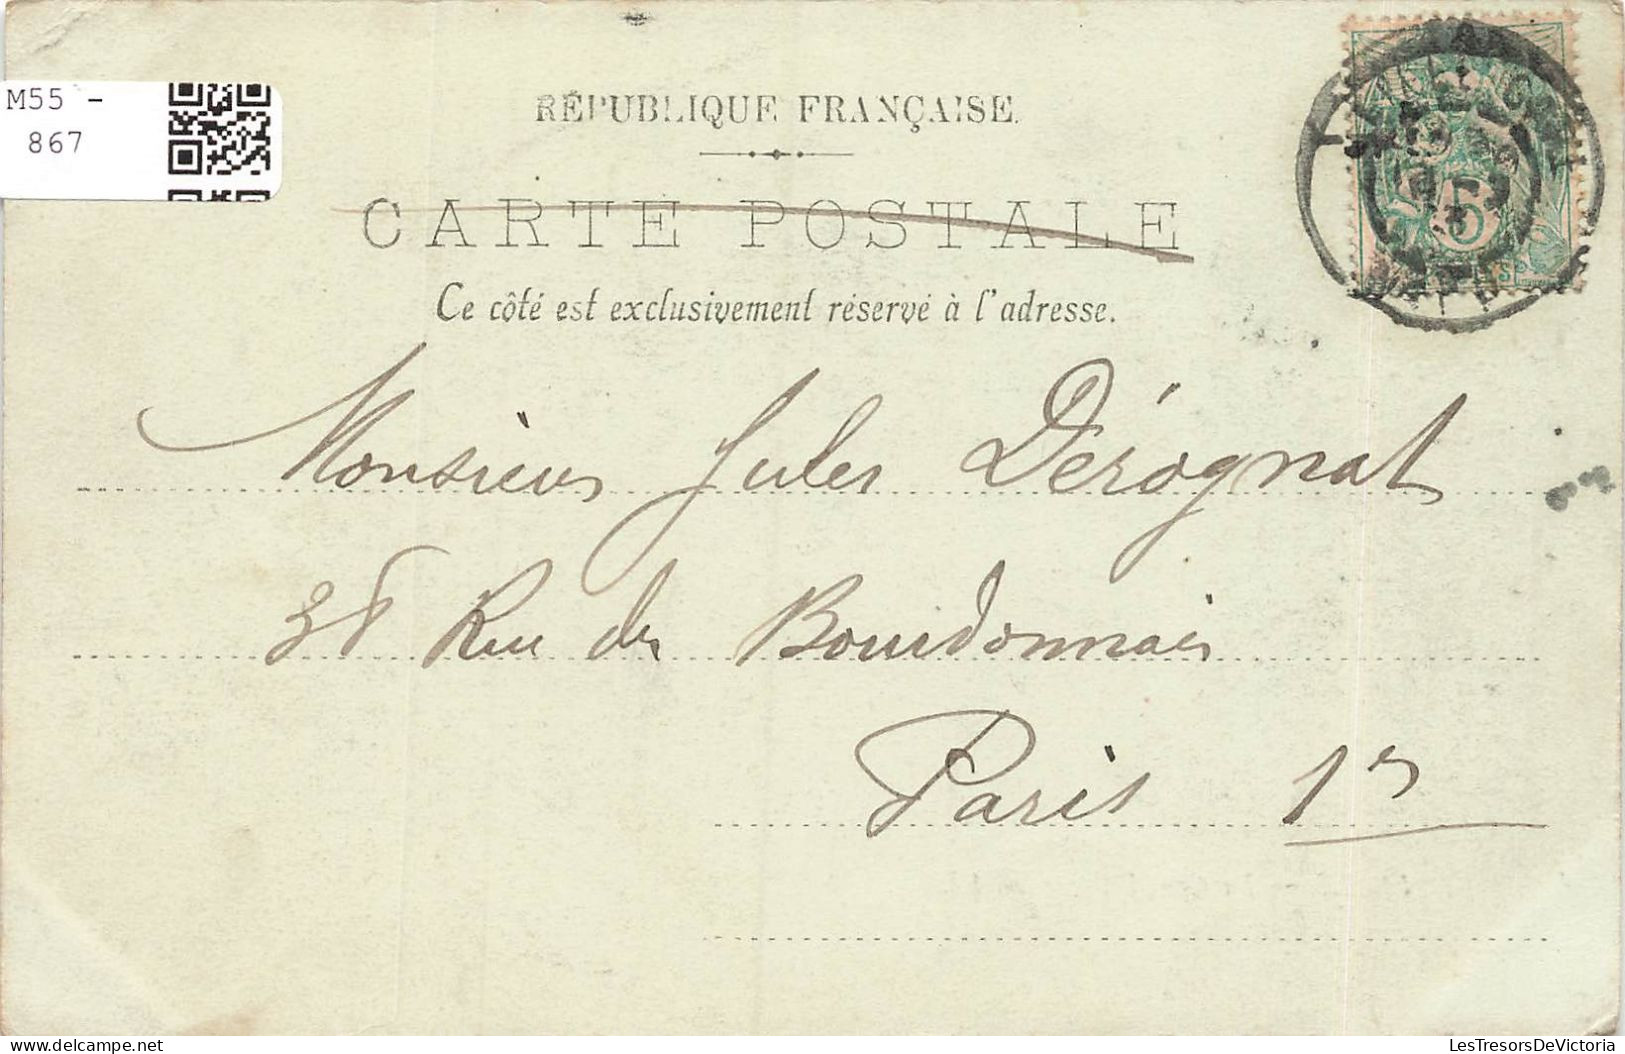 M55 -
867
RÉPUBLIQUE FRANÇAISE.
CARTE POSTALE
Ce côté est exclusivement réservé à l'adresse.
Monsieur Jules Dérognat
38 Rue des Bourdonnais
Paris 1er
LesTresorsDeVictoria